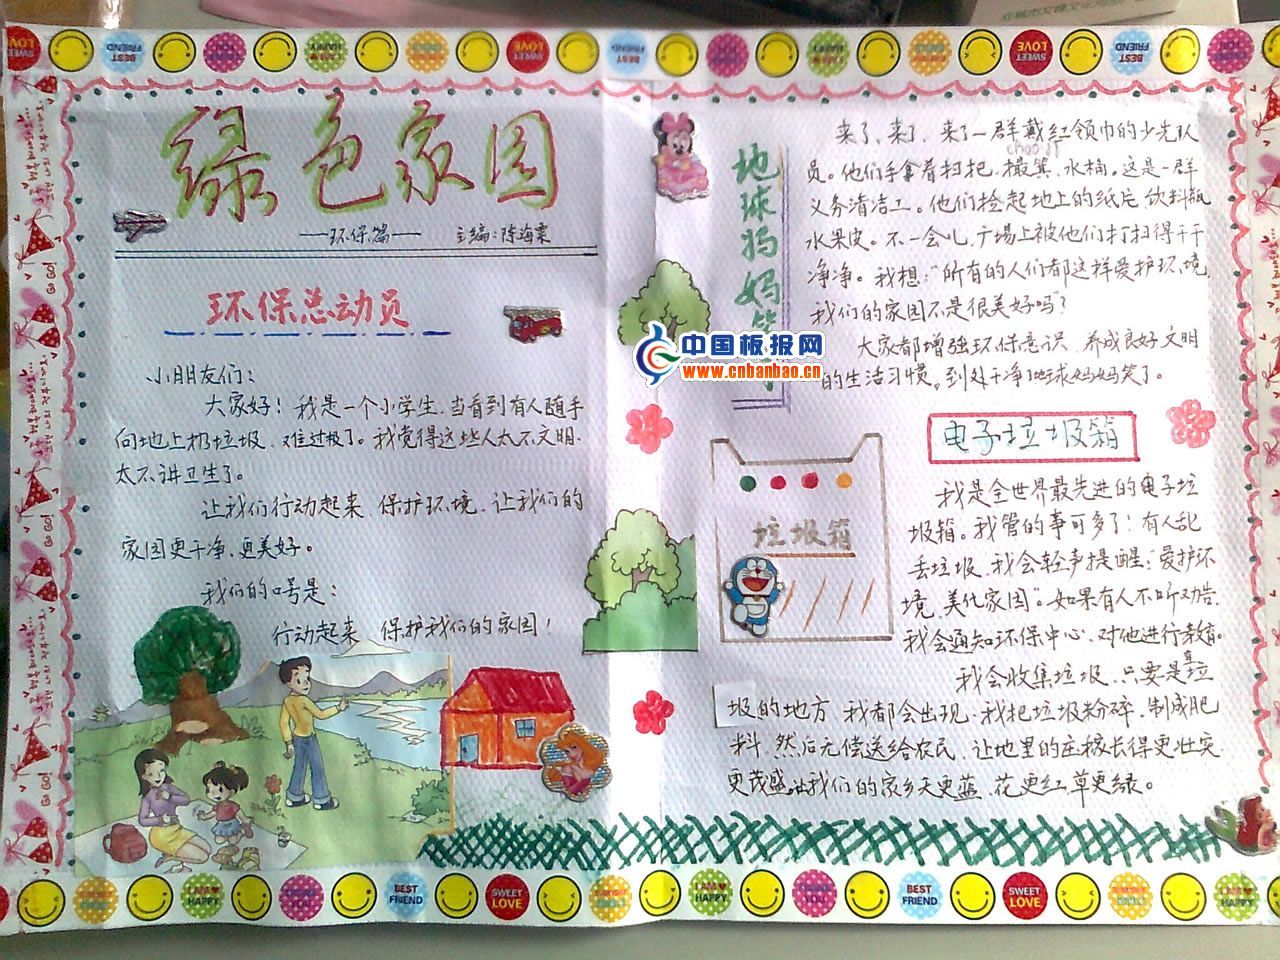 绿色家园
—环保篇— 主编:陈海棠
环保总动员
小朋友们:
大家好!我是一个小学生,当看到有人随手
向地上扔垃圾,难过极了。我觉得这些人太不文明,
太不讲卫生了。
让我们行动起来,保护环境,让我们的
家园更干净,更美好。
我们的口号是:
行动起来,保护我们的家园!
地球妈妈笑了
来了,来了,来了一群戴红领巾的少先队
员。他们手拿着扫把,撮箕,水桶。这是一群
义务清洁工。他们捡起地上的纸片,饮料瓶
水果皮。不一会儿,广场上被他们打扫得干干
净净。我想:“所有的人们都这样爱护环境,
我们的家园不是很美好吗”?
大家都增强环保意识,养成良好文明
的生活习惯。到处干净,地球妈妈笑了。
中国板报网
www.cnbanbao.cn
电子垃圾箱
垃圾箱
我是全世界最先进的电子垃
圾箱。我管的事可多了!有人乱
丢垃圾,我会轻声提醒:“爱护环
境,美化家园”。如果有人不听劝告,
我会通知环保中心,对他进行教育。
我会收集垃圾,只要是有垃
圾的地方,我都会出现,我把垃圾粉碎,制成肥
料,然后无偿送给农民,让地里的庄稼长得更壮实,
更茂盛。让我们的家乡天更蓝,花更红,草更绿。
BEST FRIEND
SWEET LOVE
I AM HAPPY